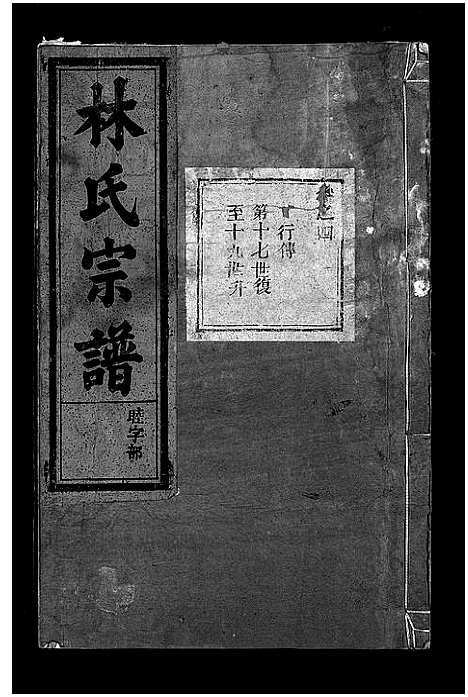 林氏宗譜
睦字部
卷之四
行傳
第十七世復
至十九世升